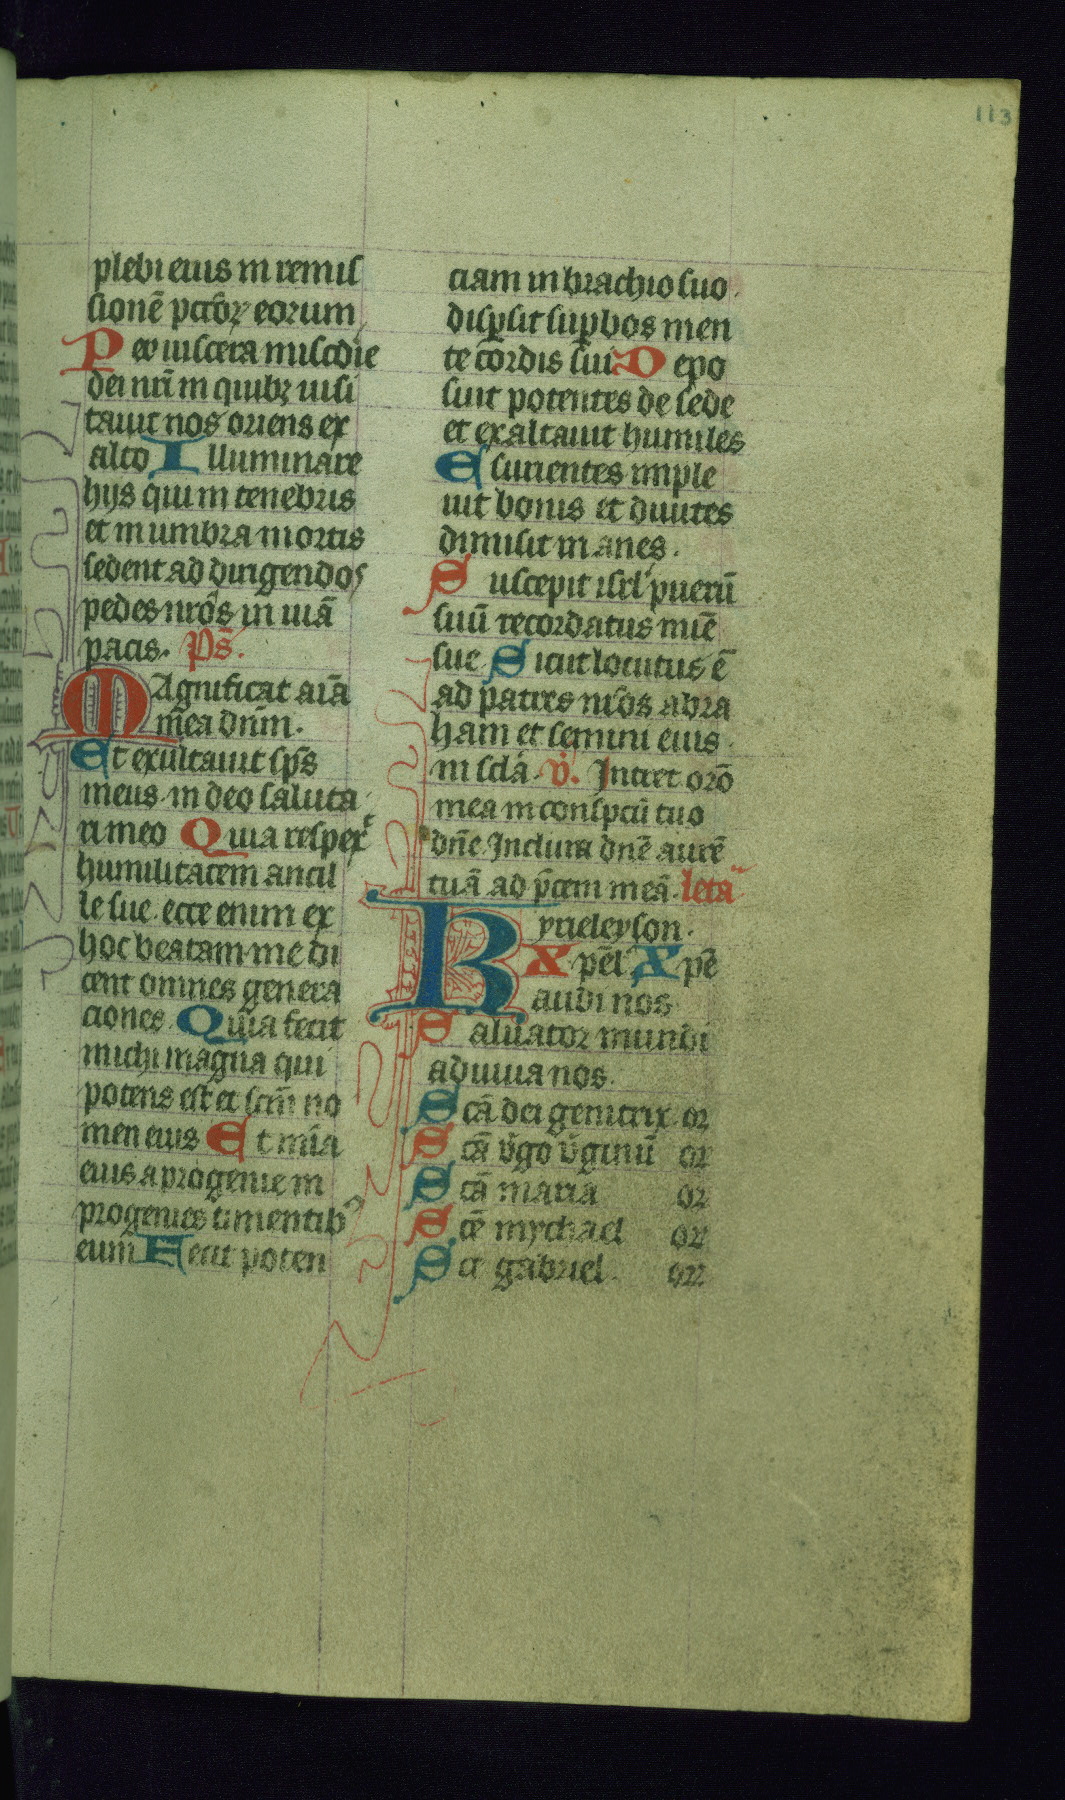 113
plebi eius in remis
sionē pctōꝝ eorum
Per uiscera miscdie
dei nr̄i in quibꝫ uisi
tauit nos oriens ex
alto Illuminare
hijs qui in tenebris
et in umbra mortis
sedent ad dirigendos
pedes nrōs in uiā
pacis. Ps̄.
Magnificat aīa
mea dnm̄.
Et exultauit sps̄
meus in deo saluta
ri meo Quia respex̄
humilitatem ancil
le sue. ecce enim ex
hoc beatam me di
cent omnes genera
ciones. Quia fecit
michi magna qui
potens est et scm̄ no
men eius Et mīa
eius a progenie in
progenies timentibꝰ
eum Fecit poten
ciam in brachio suo.
disꝑsit suꝑbos men
te cordis sui Depo
suit potentes de sede
et exaltauit humiles
Esurientes imple
uit bonis et diuites
dimisit in anes.
Suscepit isrl̄ puerū
suū recordatus mīe
sue. Sicut locutus ē
ad patres nr̄os abra
ham et semini eius
in scl̄a. v̄. Intret orō
mea in conspc̄tu tuo
dnē Inclina dnē aurē
tuā ad p̄cem meā. leta
Kyrieleyson.
Xpēl Xpē
audi nos
Saluator mundi
adiuua nos.
Scā dei genitrix or
Scā v̄go v̄ginū or
Scā maria or
Scē mychael or
Sct gabriel. orr